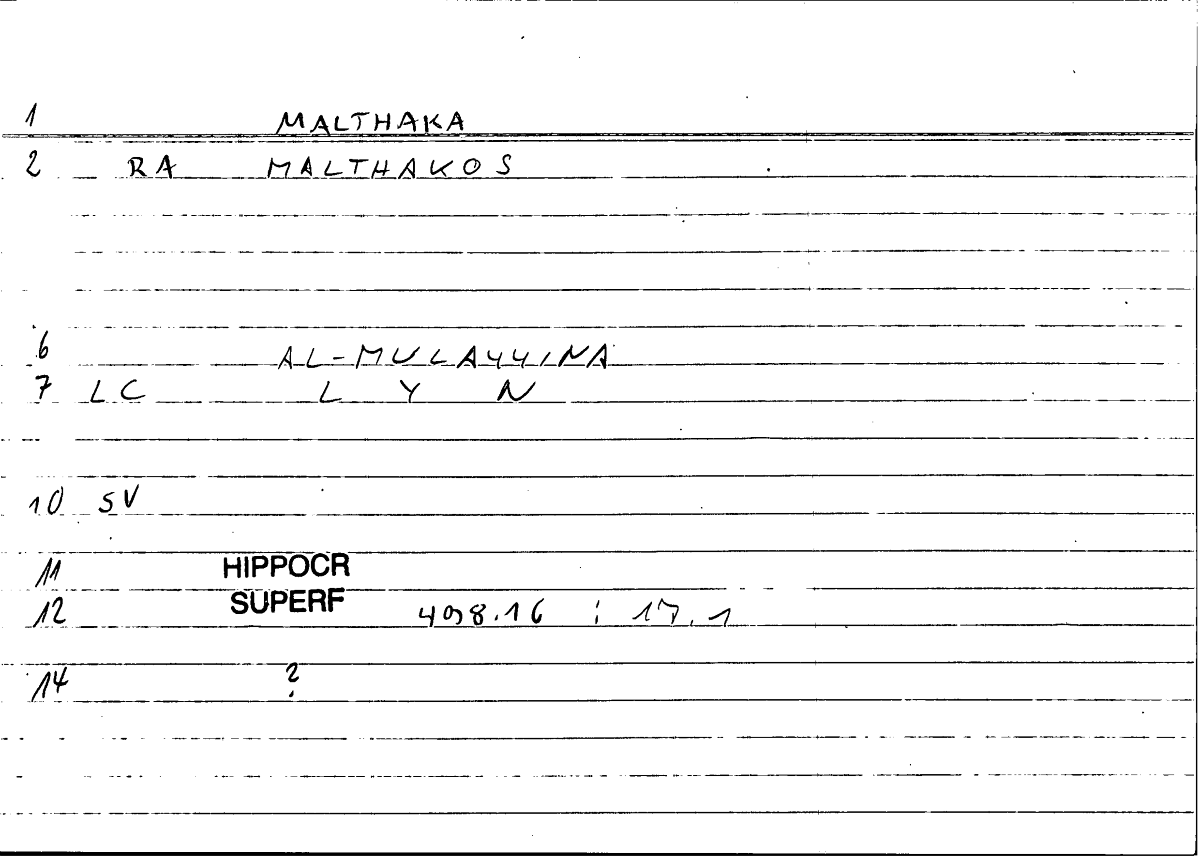 1 MALTHAKA
2 RA MALTHAKOS
6 AL-MULAYYINA
7 LC L Y N
10 SV
11 HIPPOCR
12 SUPERF 498.16 : 17.1
14 ?